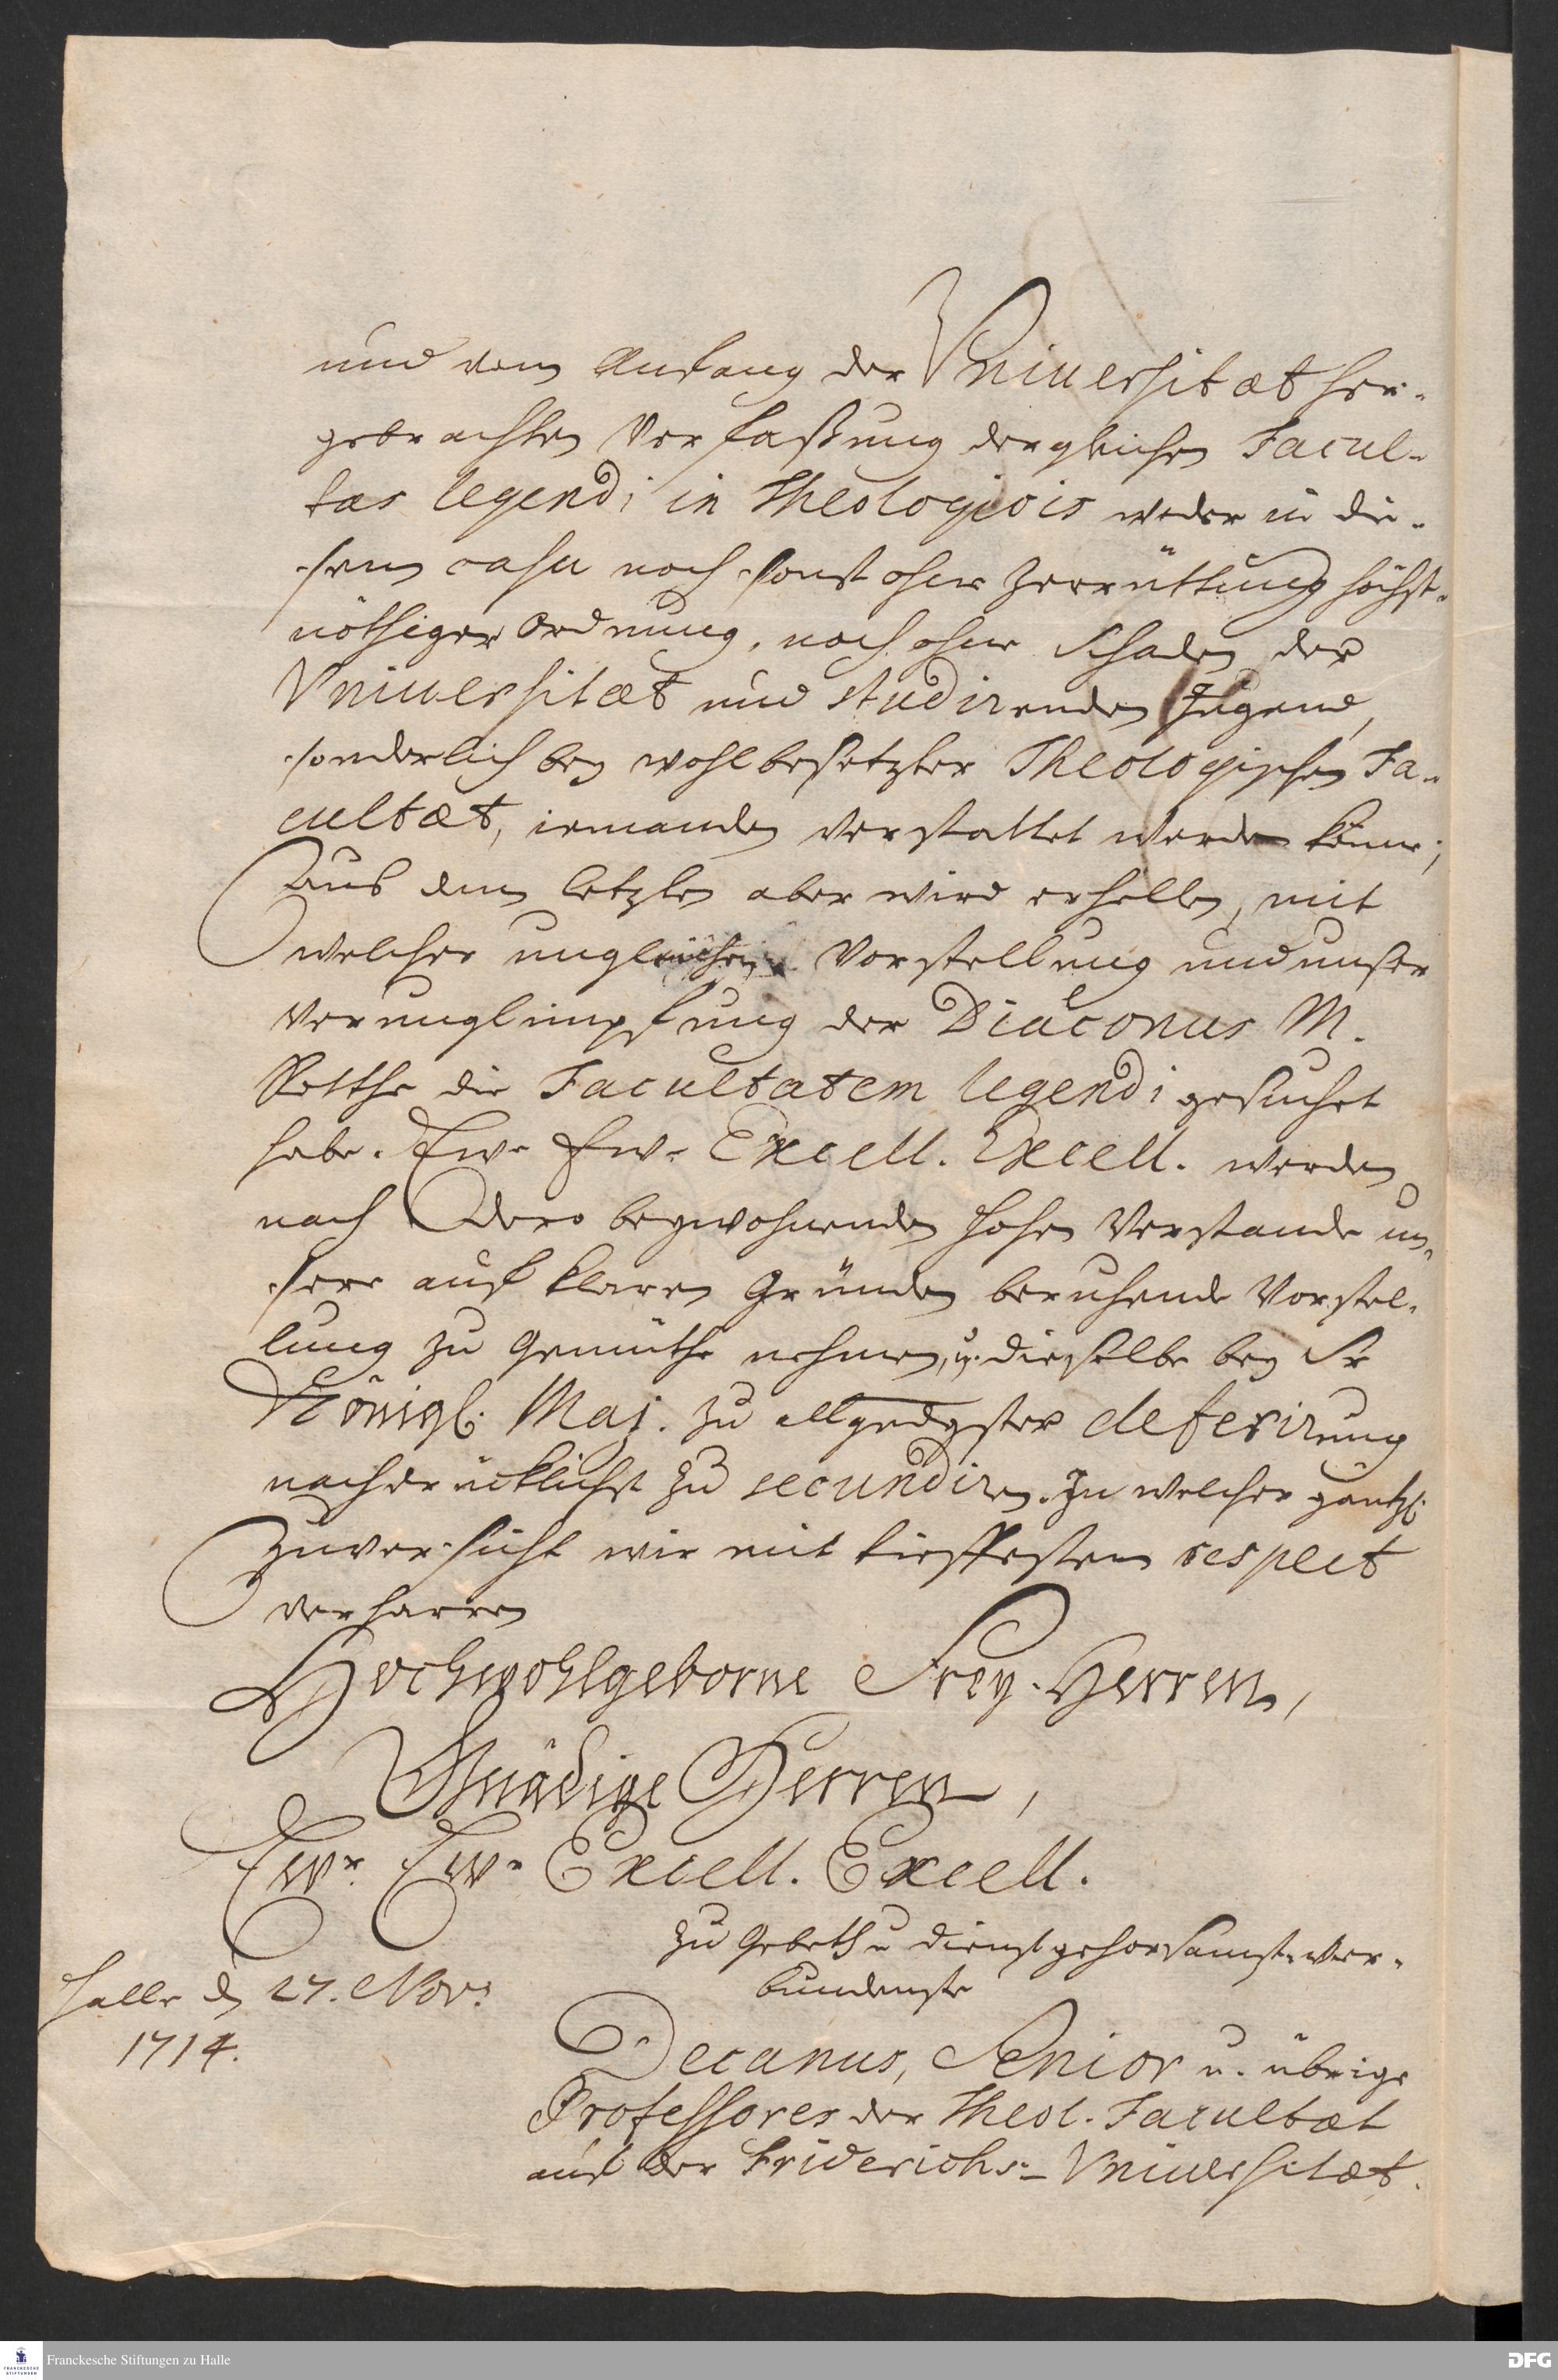 und vom Anfang der Vniuersitæt her-
gebrachten Verfaßung dergleichen Facul-
tas legendi in Theologicis weder in die-
sem casu noch sonst ohne Zerrüttung höchst-
nöthiger Ordnung, noch ohne Schaden der
Vniuersitæt und studirenden Jugend,
sonderlich bey wohlbesetzter Theologischen Fa-
cultæt, iemanden verstattet werden könne;
Aus dem letzten aber wird erhellen, mit
welcher ungleichen Vorstellung und unser
Verunglimpfung der Diaconus M.
Rotthe die Facultatem legendi gesuchet
habe. Ew. Ew. Excell. Excell. werden
nach Dero beywohnenden hohen Verstande un-
sere auf klaren Gründen beruhende Vorstel-
lung zu Gemüthe nehmen, u. dieselbe bey Sr
Königl. Maj. zu allgndgster deferirung
nachdrücklichst zu secundiren. In welcher gäntzl.
Zuversicht wir mit tieffesten respect
verharren
Hochwohlgeborne Frey-Herren,
Gnädige Herren,
Ewr. Ew. Excell. Excell.
zu Gebeth u Dienst gehorsamst-ver-
bundenste
Halle d 27. Nov.
1714.
Decanus, Senior u. übrige
Professores der Theol. Facultæt
auf der Friderichs-Vniuersitæt.
Franckesche Stiftungen zu Halle
DFG